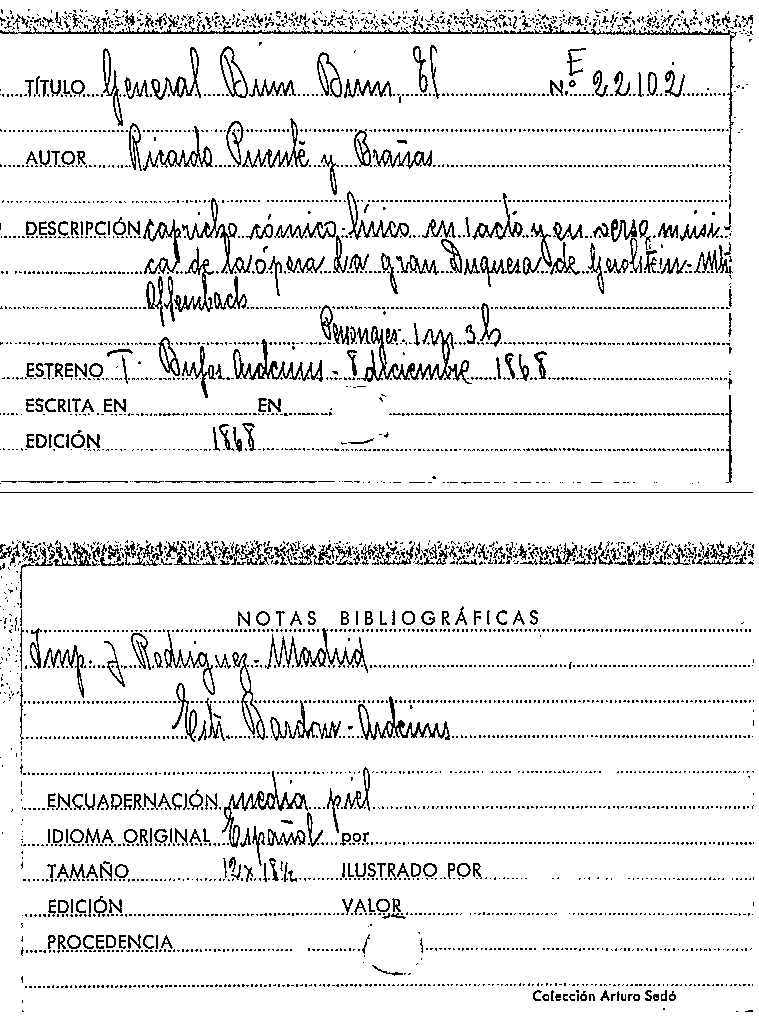 TÍTULO General Bum Bum, El N.º E 22102
AUTOR Ricardo Puente y Brañas
DESCRIPCIÓN capricho cómico-lírico en 1 acto y en verso músi-
ca de la ópera La gran Duquesa de Gerolstein - Mtro
Offembach
Personajes: 1 m 3 h
ESTRENO T. Bufos Arderius - 8 diciembre 1868
ESCRITA EN EN
EDICIÓN 1868
NOTAS BIBLIOGRÁFICAS
Imp. J Rodriguez - Madrid
Estr. Bardou - Arderius
ENCUADERNACIÓN media piel
IDIOMA ORIGINAL Español por
TAMAÑO 12 x 18½ ILUSTRADO POR
EDICIÓN VALOR
PROCEDENCIA
Colección Arturo Sedó